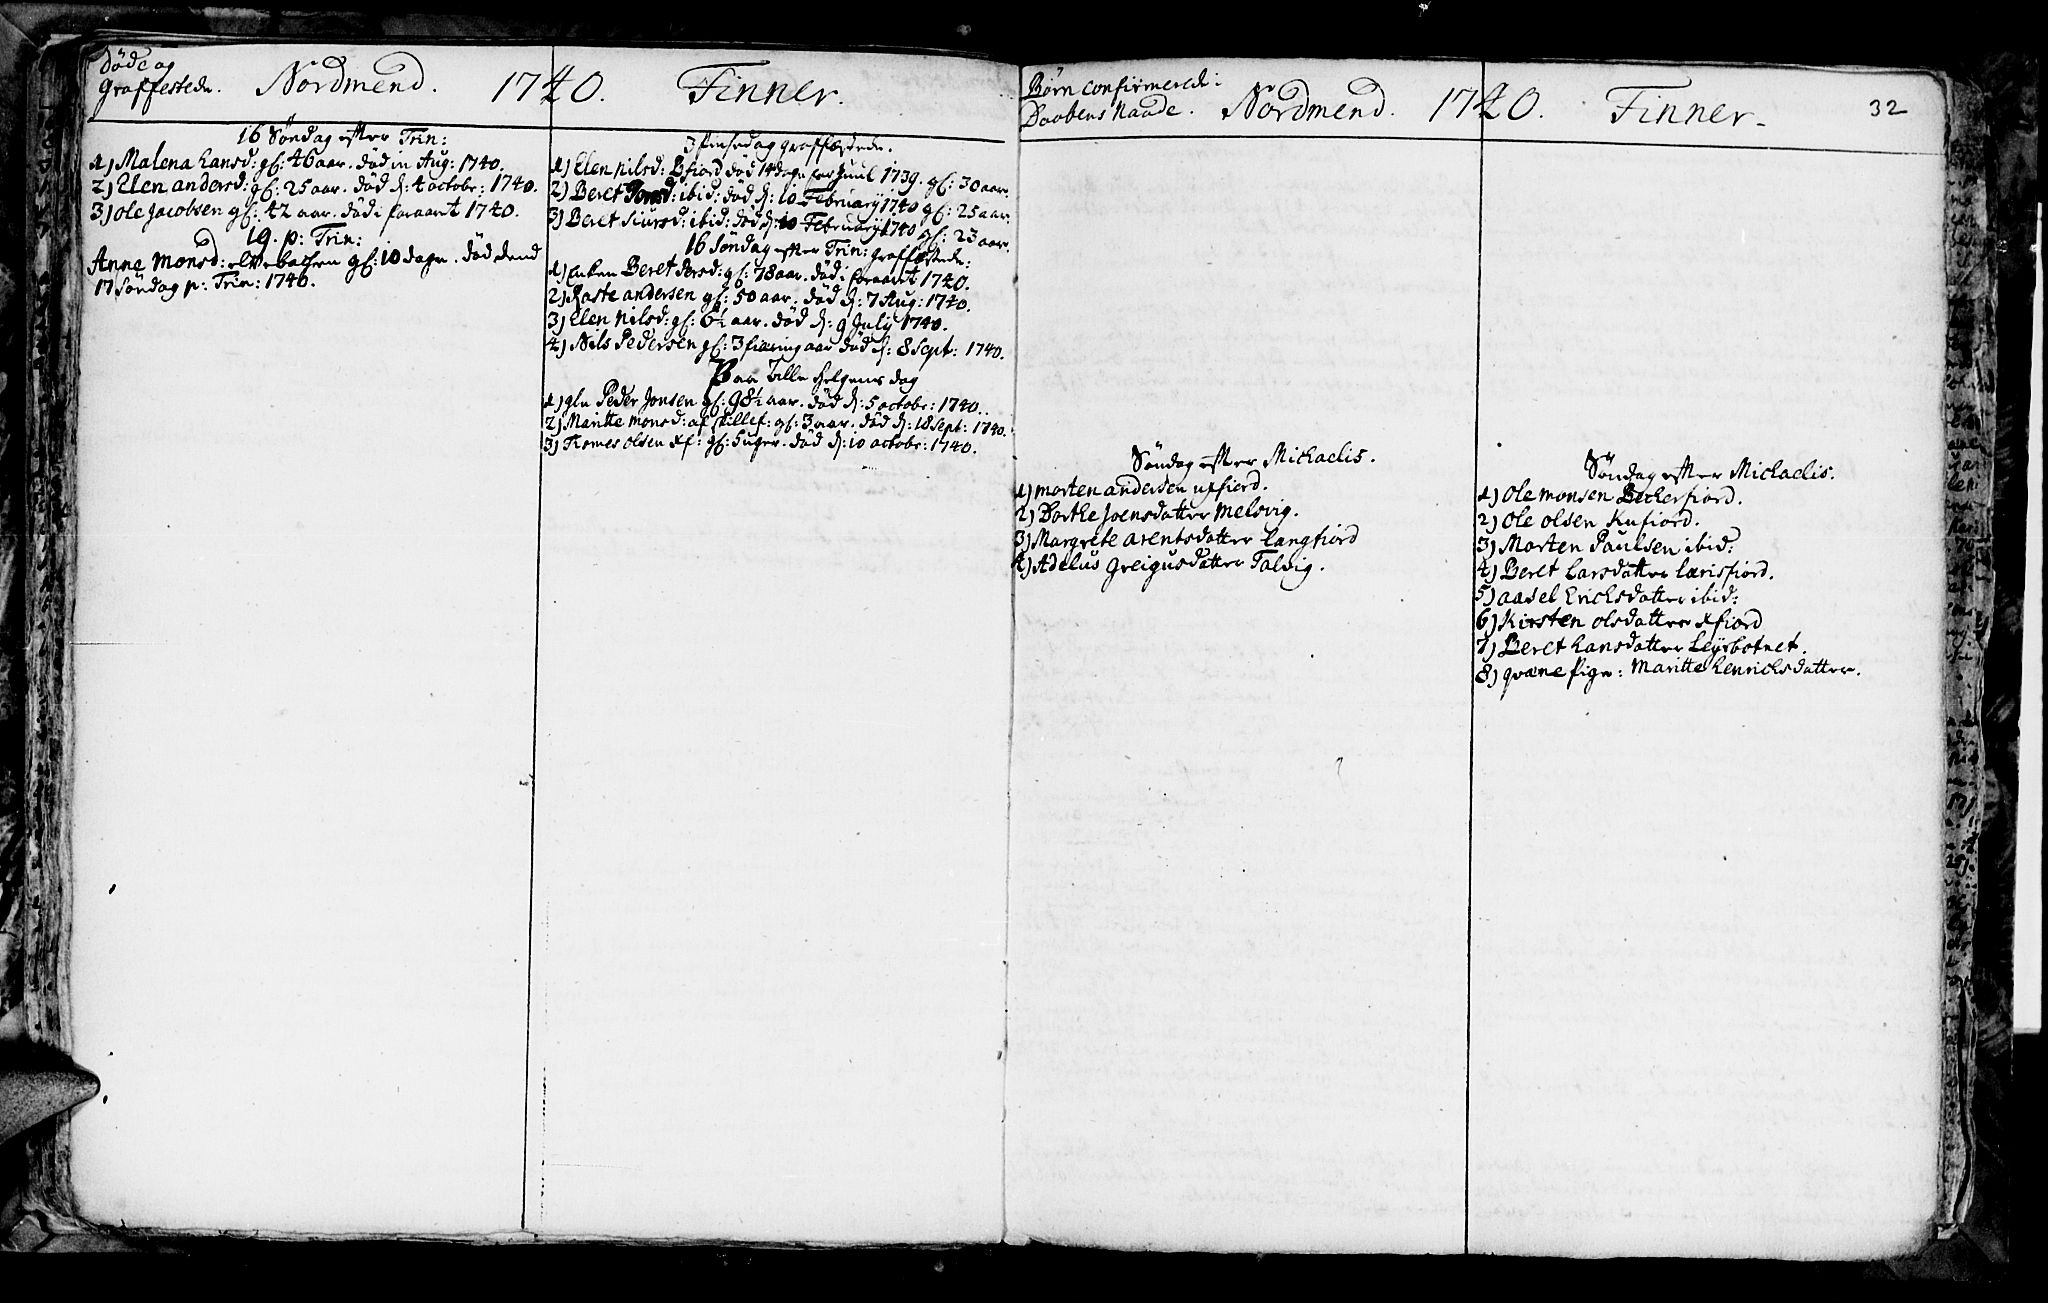 Døde og
Graffestede. Nordmend. 1740. Finner.
16 Søndag efter Trin:
1) Malena Hansd: gl: 46 aar. død in Aug: 1740.
2) Elen andersd: gl: 25 aar. død d: 4 octobr: 1740.
3) Ole Jacobsen gl: 42 aar. død i foraaret 1740.
19. p: Trin:
Anne Monsd: elvebachen gl: 10 dage. død dend
17 Søndag p: Trin: 1740.
3 Pinsedag graffæstede.
1) Elen Nilsd: Bfiord død 14 dage før Juul 1739. gl: 30 aar.
2) Beret Jonsd: ibid: død d: 10 February 1740 gl: 25 aar.
3) Beret Siursd: ibid: død d: 10 February 1740 gl: 23 aar.
16 Søndag efter Trin: graffæstede:
1) Enken Beret Persd: gl: 78 aar. død i foraaret 1740.
2) Raste andersen gl: 50 aar. død d: 7 Aug: 1740.
3) Elen Nilsd: gl: 6½ aar. død d: 9 July 1740.
4) Nils Pedersen gl: 3 fiæring aar død d: 8 Sept: 1740.
Paa Alle Helgens dag
1) gln Peder Jonsen gl: 98½ aar. død d: 5 octobr: 1740.
2) Maritte Monsd: af Stillef: gl: 3 aar. død d: 18 Sept: 1740.
3) Tomes olsen xf: gl: 5 uger. død d: 10 octobr: 1740.
Børn confirmerede i
Daabens Naade. Nordmend. 1740. Finner. 32
Søndag efter Michaelis.
1) Morten andersen ufiord.
2) Dorthe Joensdatter Melsvig.
3) Margrete arentsdatter Langfiord
4) Adelus Greigusdatter Talvig.
Søndag efter Michaelis.
1) Ole Monsen Beckerfiord.
2) Ole olsen Kufiord.
3) Morten Paulsen ibid:
4) Beret Larsdatter Lærisfiord.
5) aasel Ericksdatter ibid:
6) Kirsten olsdatter xfiord
7) Beret Hansdatter Leÿrbotnet.
8) qvæne Pige: Maritte Henrichsdatter.